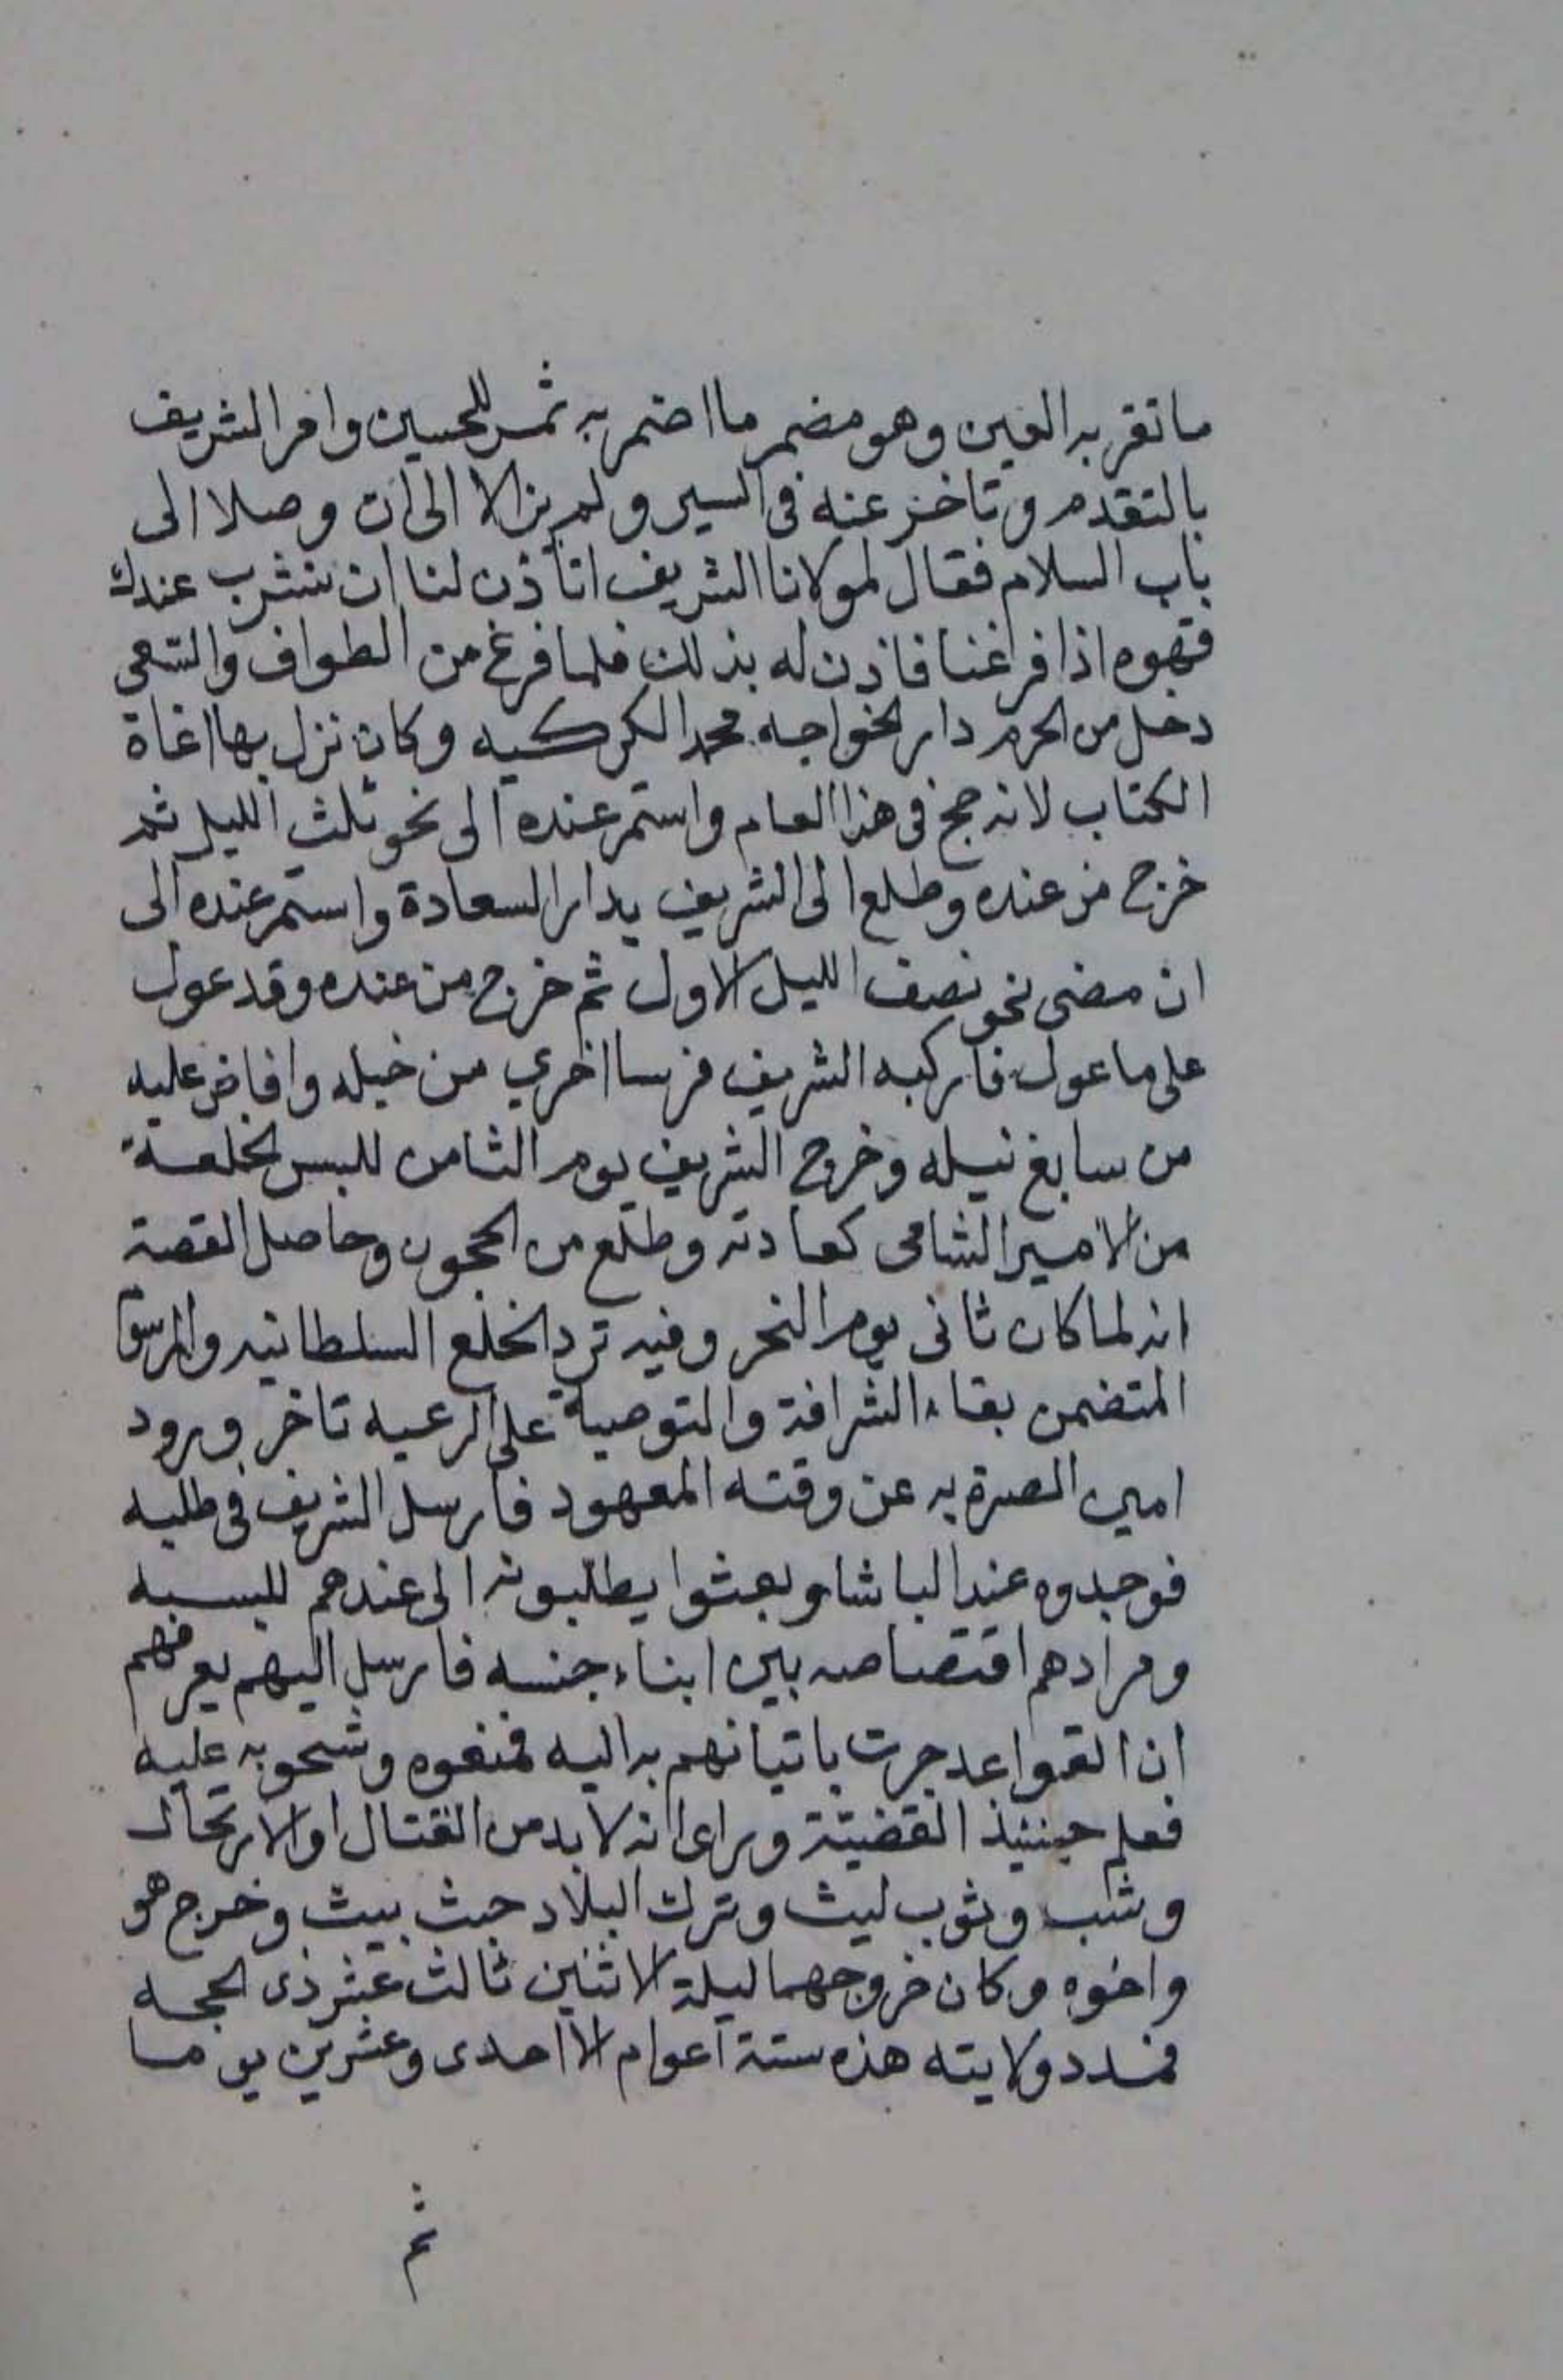 ما تقر به العين وهو مضمر ما اضمر به شمر للحسين وامر الشريف
بالتقدم وتاخر عنه فى السير ولم يزالا الى ان وصلا الى
باب السلام فقال لمولانا الشريف اتأذن لنا ان نشرب عندك
قهوه اذا فرغنا فاذن له بذلك فلما فرغ من الطواف والسعى
دخل من الحرم دار الخواجه محمد الكركيه وكان نزل بها اغاة
الكتاب لانه حج فى هذا العام واستمر عنده الى نحو ثلث الليل ثم
خرج من عنده وطلع الى الشريف بدار السعادة واستمر عنده الى
ان مضى نحو نصف الليل الاول ثم خرج من عنده وقد عول
على ما عول فاركبه الشريف فرسا اخري من خيله وافاض عليه
من سابغ نيله وخرج الشريف يوم الثامن للبس الخلعة
من الامير الشامى كعادته وطلع من الحجون وحاصل القصة
انه لما كان ثانى يوم النحر وفيه ترد الخلع السلطانيه والمرسوم
المتضمن بقاء الشرافة والتوصية على الرعيه تاخر ورود
امين الصرة به عن وقته المعهود فارسل الشريف فى طلبه
فوجدوه عند الباشا وبعثوا يطلبونه الى عندهم للبسه
ومرادهم اقتصاصه بين ابناء جنسه فارسل اليهم يعرفهم
ان القواعد جرت باتيانهم به اليه فمنعوه وشحو به عليه
فعلم حينئذ القضيّة وراى انه لا بد من القتال او الارتحال
وشب وثوب ليث وترك البلاد حيث بيث وخرج هو
واخوه وكان خروجهما ليلة الاثنين ثالث عشر ذى الحجه
فمدد ولايته هذه ستة اعوام الا احدى وعشرين يوما
ثم